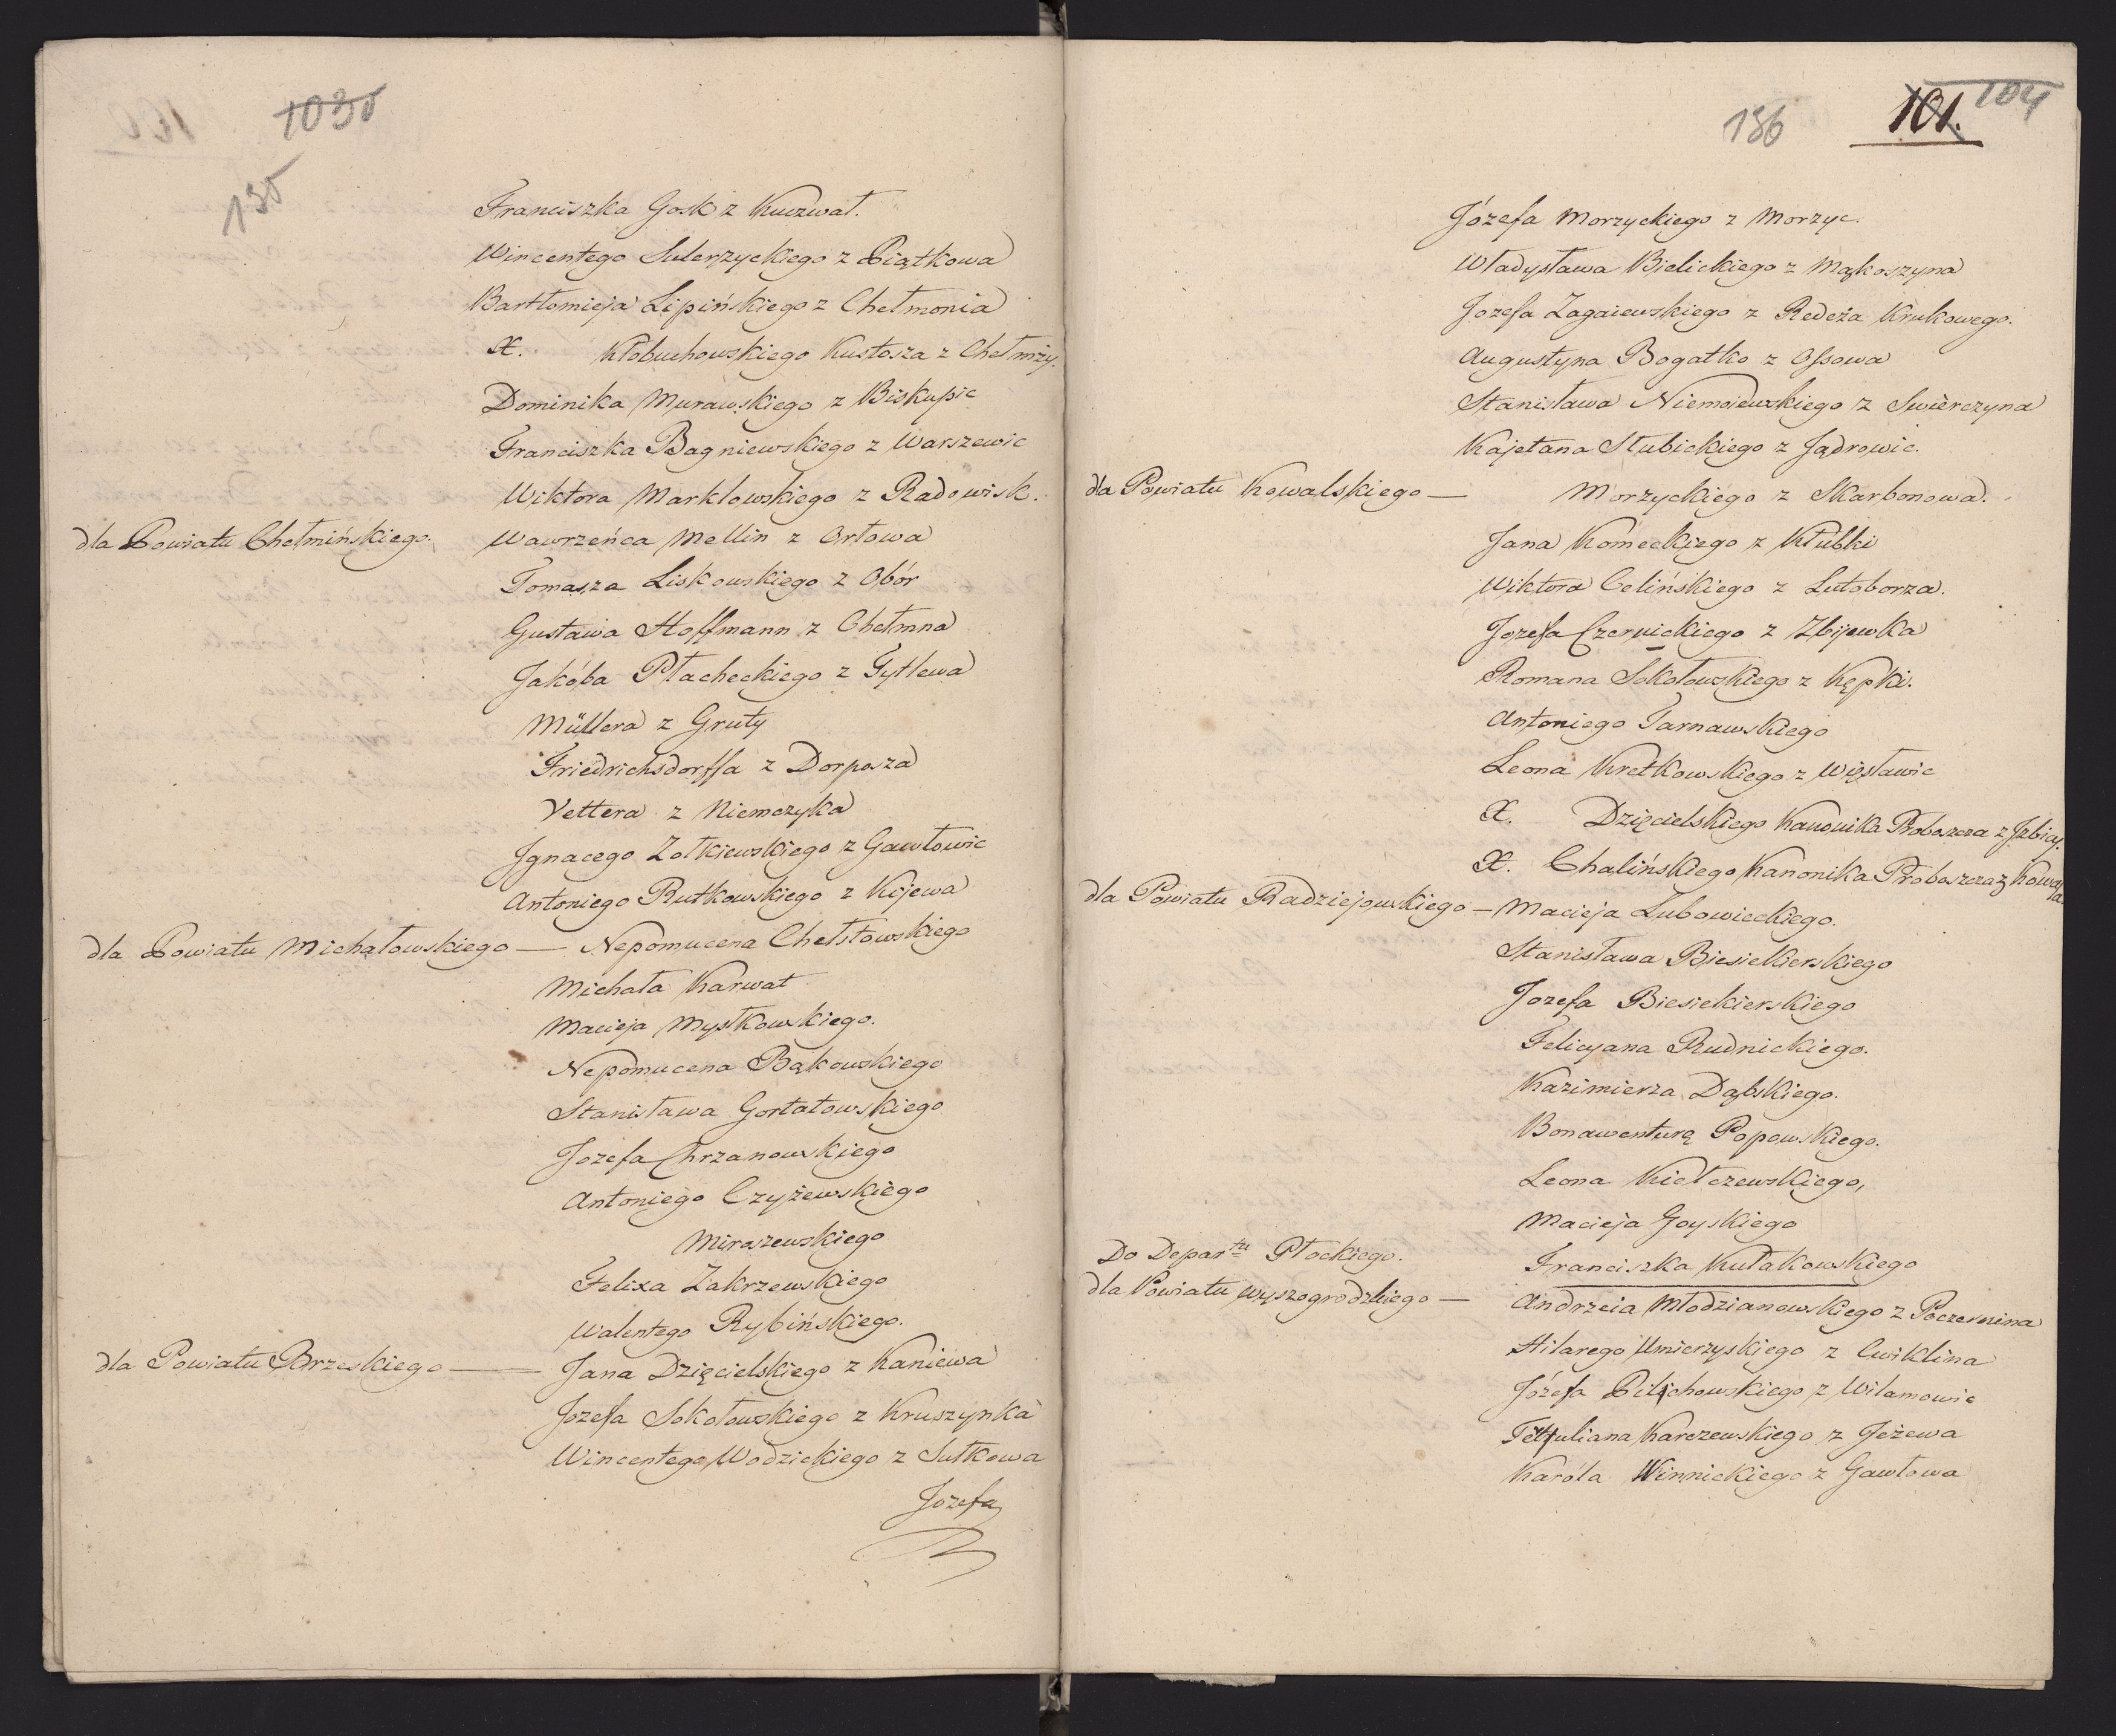 1030
135
Franciszka Gosk z Kuczwał.
Wincentego Sulerzyckiego z Piątkowa
Bartłomieja Lipińskiego z Chełmonia
X. Kłobuchowskiego Kustosza z Chełmży.
Dominika Murawskiego z Biskupic
Franciszka Bagniewskiego z Warszewic
Wiktora Marklowskiego z Radowisk.
dla Powiatu Chełmińskiego. Wawrzeńca Mellin z Orłowa
Tomasza Liskowskiego z Obór
Gustawa Hoffmann z Chełmna
Jakóba Płacheckiego z Tytlewa
Müllera z Gruty
Friedrichsdorffa z Dorposza
Vettera z Niemczyka
Jgnacego Zołkiewskiego z Gawłowic
Antoniego Rutkowskiego z Kijewa
dla Powiatu Michałowskiego — Nepomucena Chełstowskiego
Michała Karwat
Macieja Mystkowskiego.
Nepomucena Bąkowskiego
Stanisława Gortatowskiego
Jozefa Chrzanowskiego
Antoniego Czyżewskiego
Miraszewskiego
Felixa Zakrzewskiego
Walentego Rybińskiego.
dla Powiatu Brzeskiego — Jana Dzięcielskiego z Kaniewa
Jozefa Sokołowskiego z Kruszynka
Wincentego Wodzickiego z Sutkowa
Jozefa
136 101. 104
Józefa Morzyckiego z Morzyc.
Władysława Bielickiego z Mąkoszyna
Jozefa Zagaiewskiego z Redeża Krukowego.
Augustyna Bogatko z Ossowa
Stanisława Niemoiewskiego z Swierczyna
Kajetana Słubickiego z Jądrowic.
dla Powiatu Kowalskiego — Morzyckiego z Skarbonowa.
Jana Komeckiego z Kłubki
Wiktora Celińskiego z Lutoborza.
Jozefa Czernickiego z Zbijewka
Romana Sokołowskiego z Kępki.
Antoniego Tarnawskiego
Leona Kretkowskiego z Więsławic
X. Dzięcielskiego Kanonika Proboszcza z Jzbicy.
X. Chalińskiego Kanonika Proboszcza z Kowala
dla Powiatu Radziejowskiego — Macieja Lubowieckiego.
Stanisława Biesiekierskiego
Jozefa Biesiekierskiego
Felicyana Rudnickiego.
Kazimierza Dąbskiego.
Bonawenturę Popowskiego.
Leona Kiełczewskiego,
Macieja Goyskiego
DoEpartu Płockiego. Franciszka Kułakowskiego
dla Powiatu Wyszogrodzkiego — Andrzeia Młodzianowskiego z Poczernina
Hilarego Umierzyskiego z Cwiklina
Józefa Pilichowskiego z Wilamowic
Tertuliana Karczewskiego z Jeżewa
Karóla Winnickiego z Gawłowa